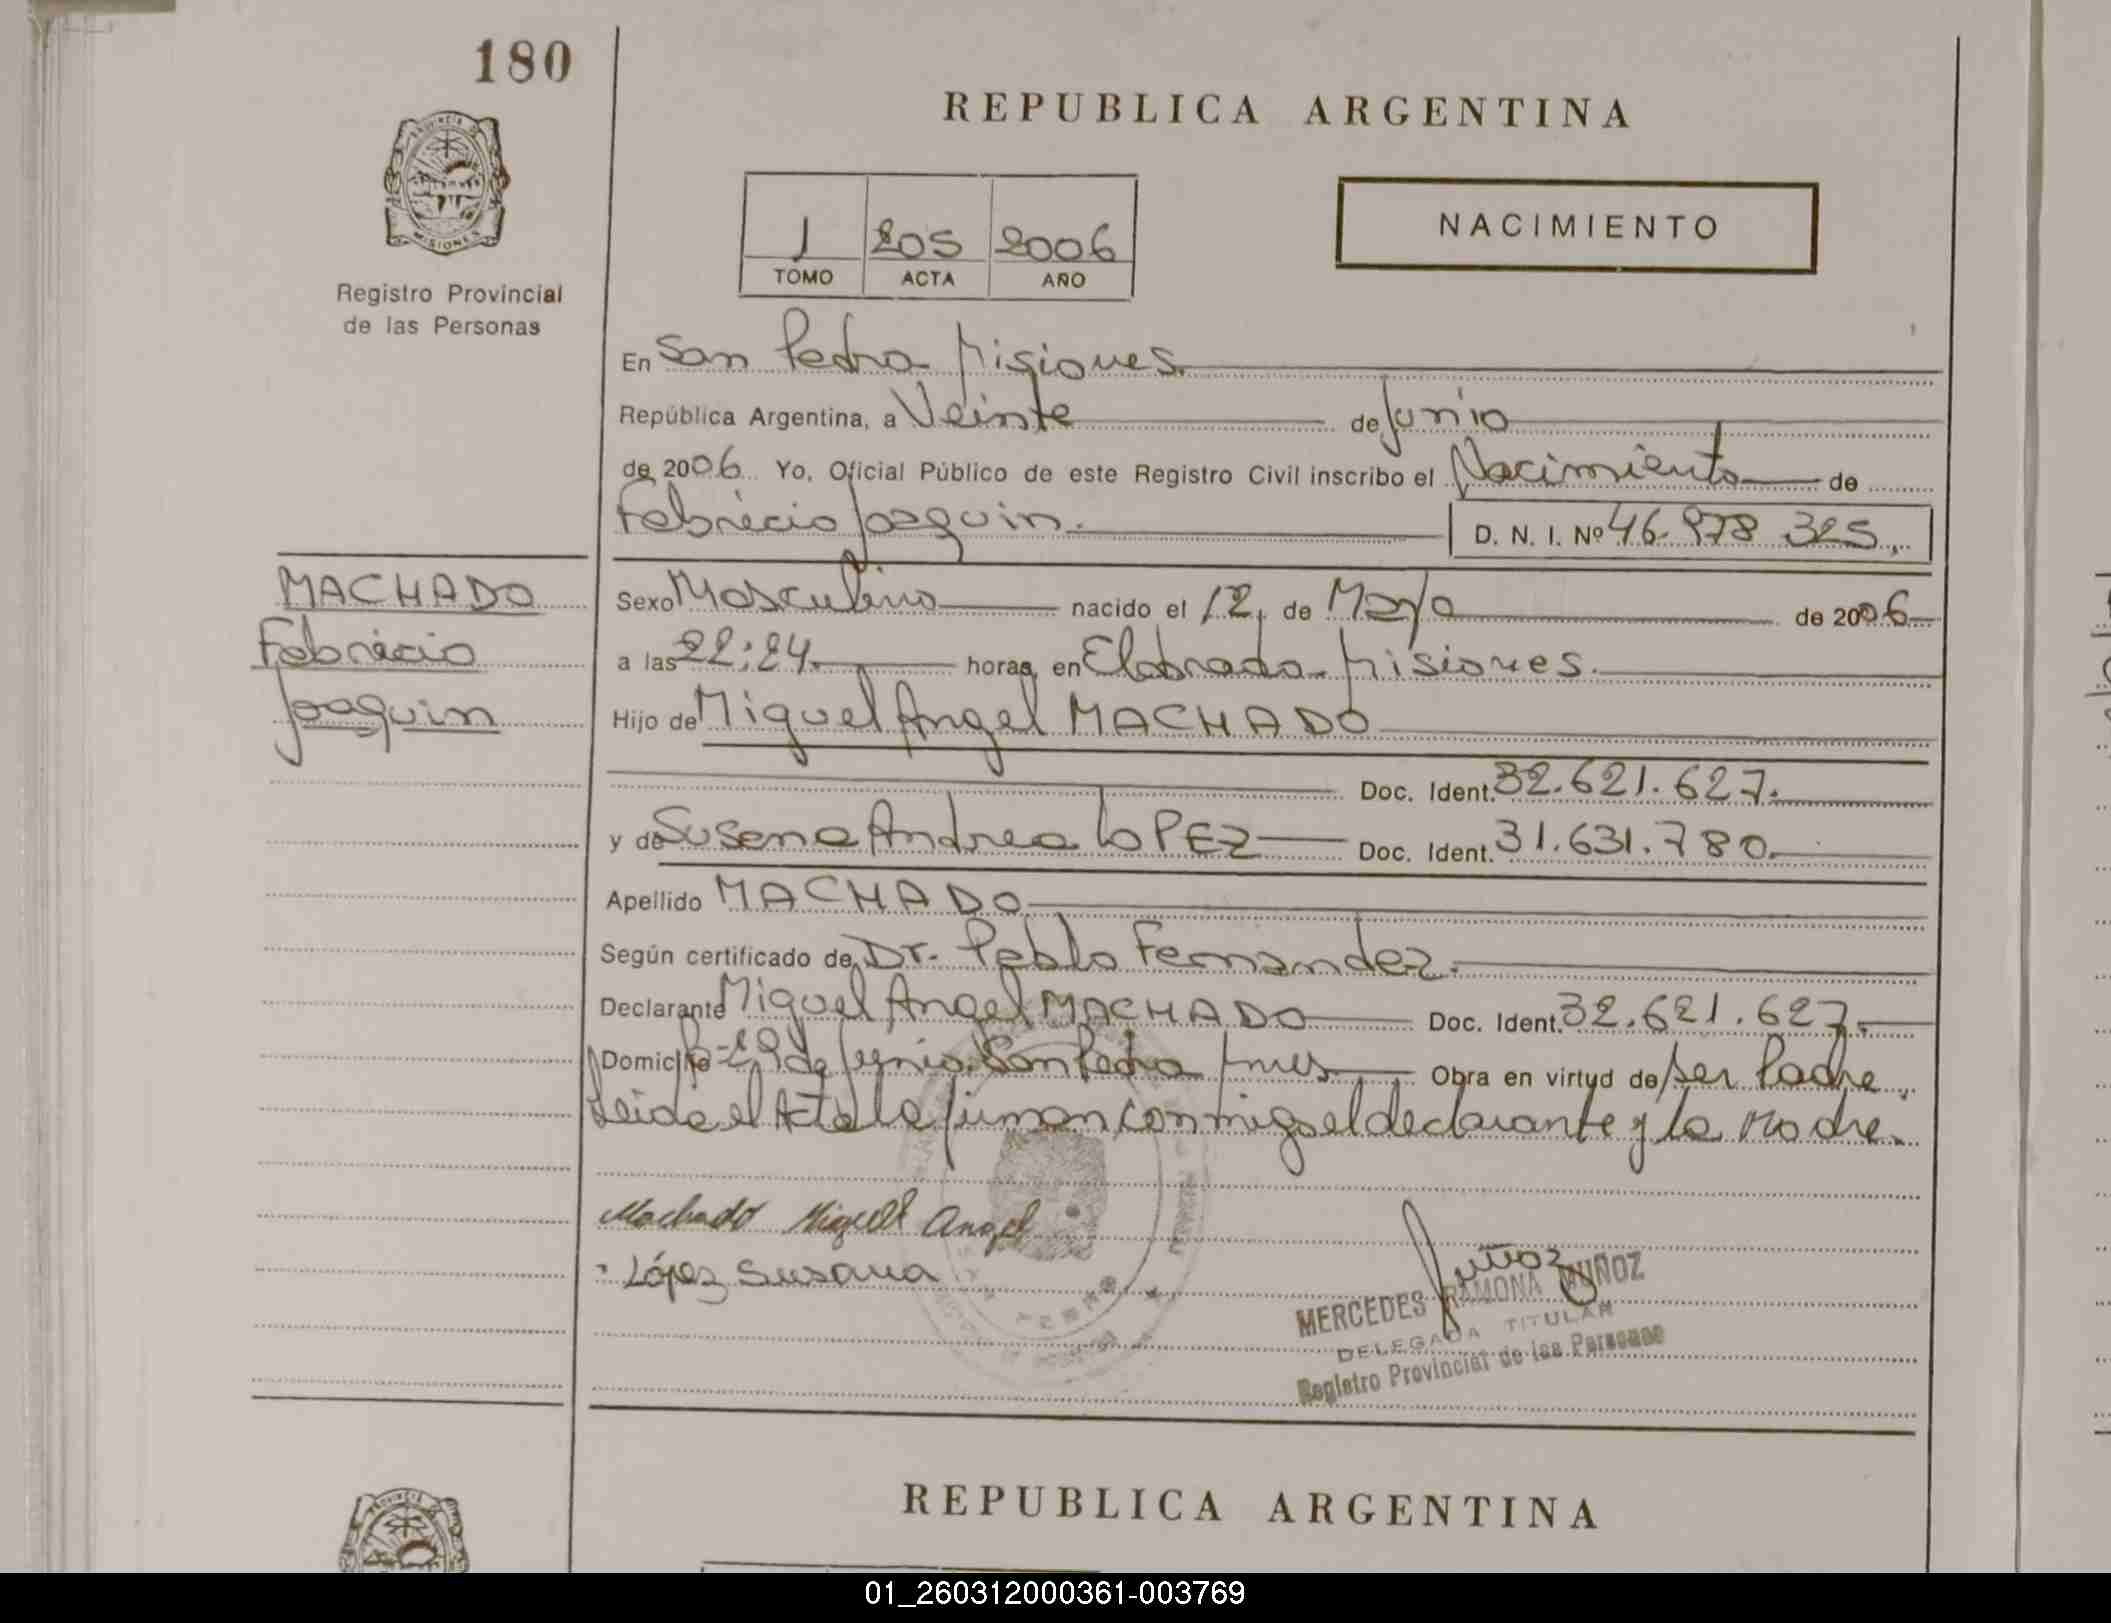 180
REPUBLICA ARGENTINA
PROVINCIA DE
MISIONES
Registro Provincial
de las Personas
1 205 2006
TOMO ACTA AÑO
NACIMIENTO
En San Pedro Misiones.
República Argentina, a Veinte de Junio
de 2006 Yo, Oficial Público de este Registro Civil inscribo el Nacimiento de
Fabricio Joaquin. D. N. I. Nº 46.978 325,
MACHADO
Fabricio
Joaquin
Sexo Masculino nacido el 12, de Mayo de 2006
a las 22:24. horas, en Eldorado Misiones.
Hijo de Miguel Angel MACHADO
Doc. Ident. 32.621.627.
y de Susana Andrea LOPEZ Doc. Ident. 31.631.780.
Apellido MACHADO
Según certificado de Dr. Pablo Fernandez.
Declarante Miguel Angel MACHADO Doc. Ident. 32.621.627.
Domicilio de Junio. San Pedro Mnes Obra en virtud de ser Padre
Leida el Acta la firman conmigo el declarante y la Madre.
Machado Miguel Angel
López Susana
Muñoz
MERCEDES RAMONA MUÑOZ
DELEGADA TITULAR
Registro Provincial de las Personas
REPUBLICA ARGENTINA
01_260312000361-003769